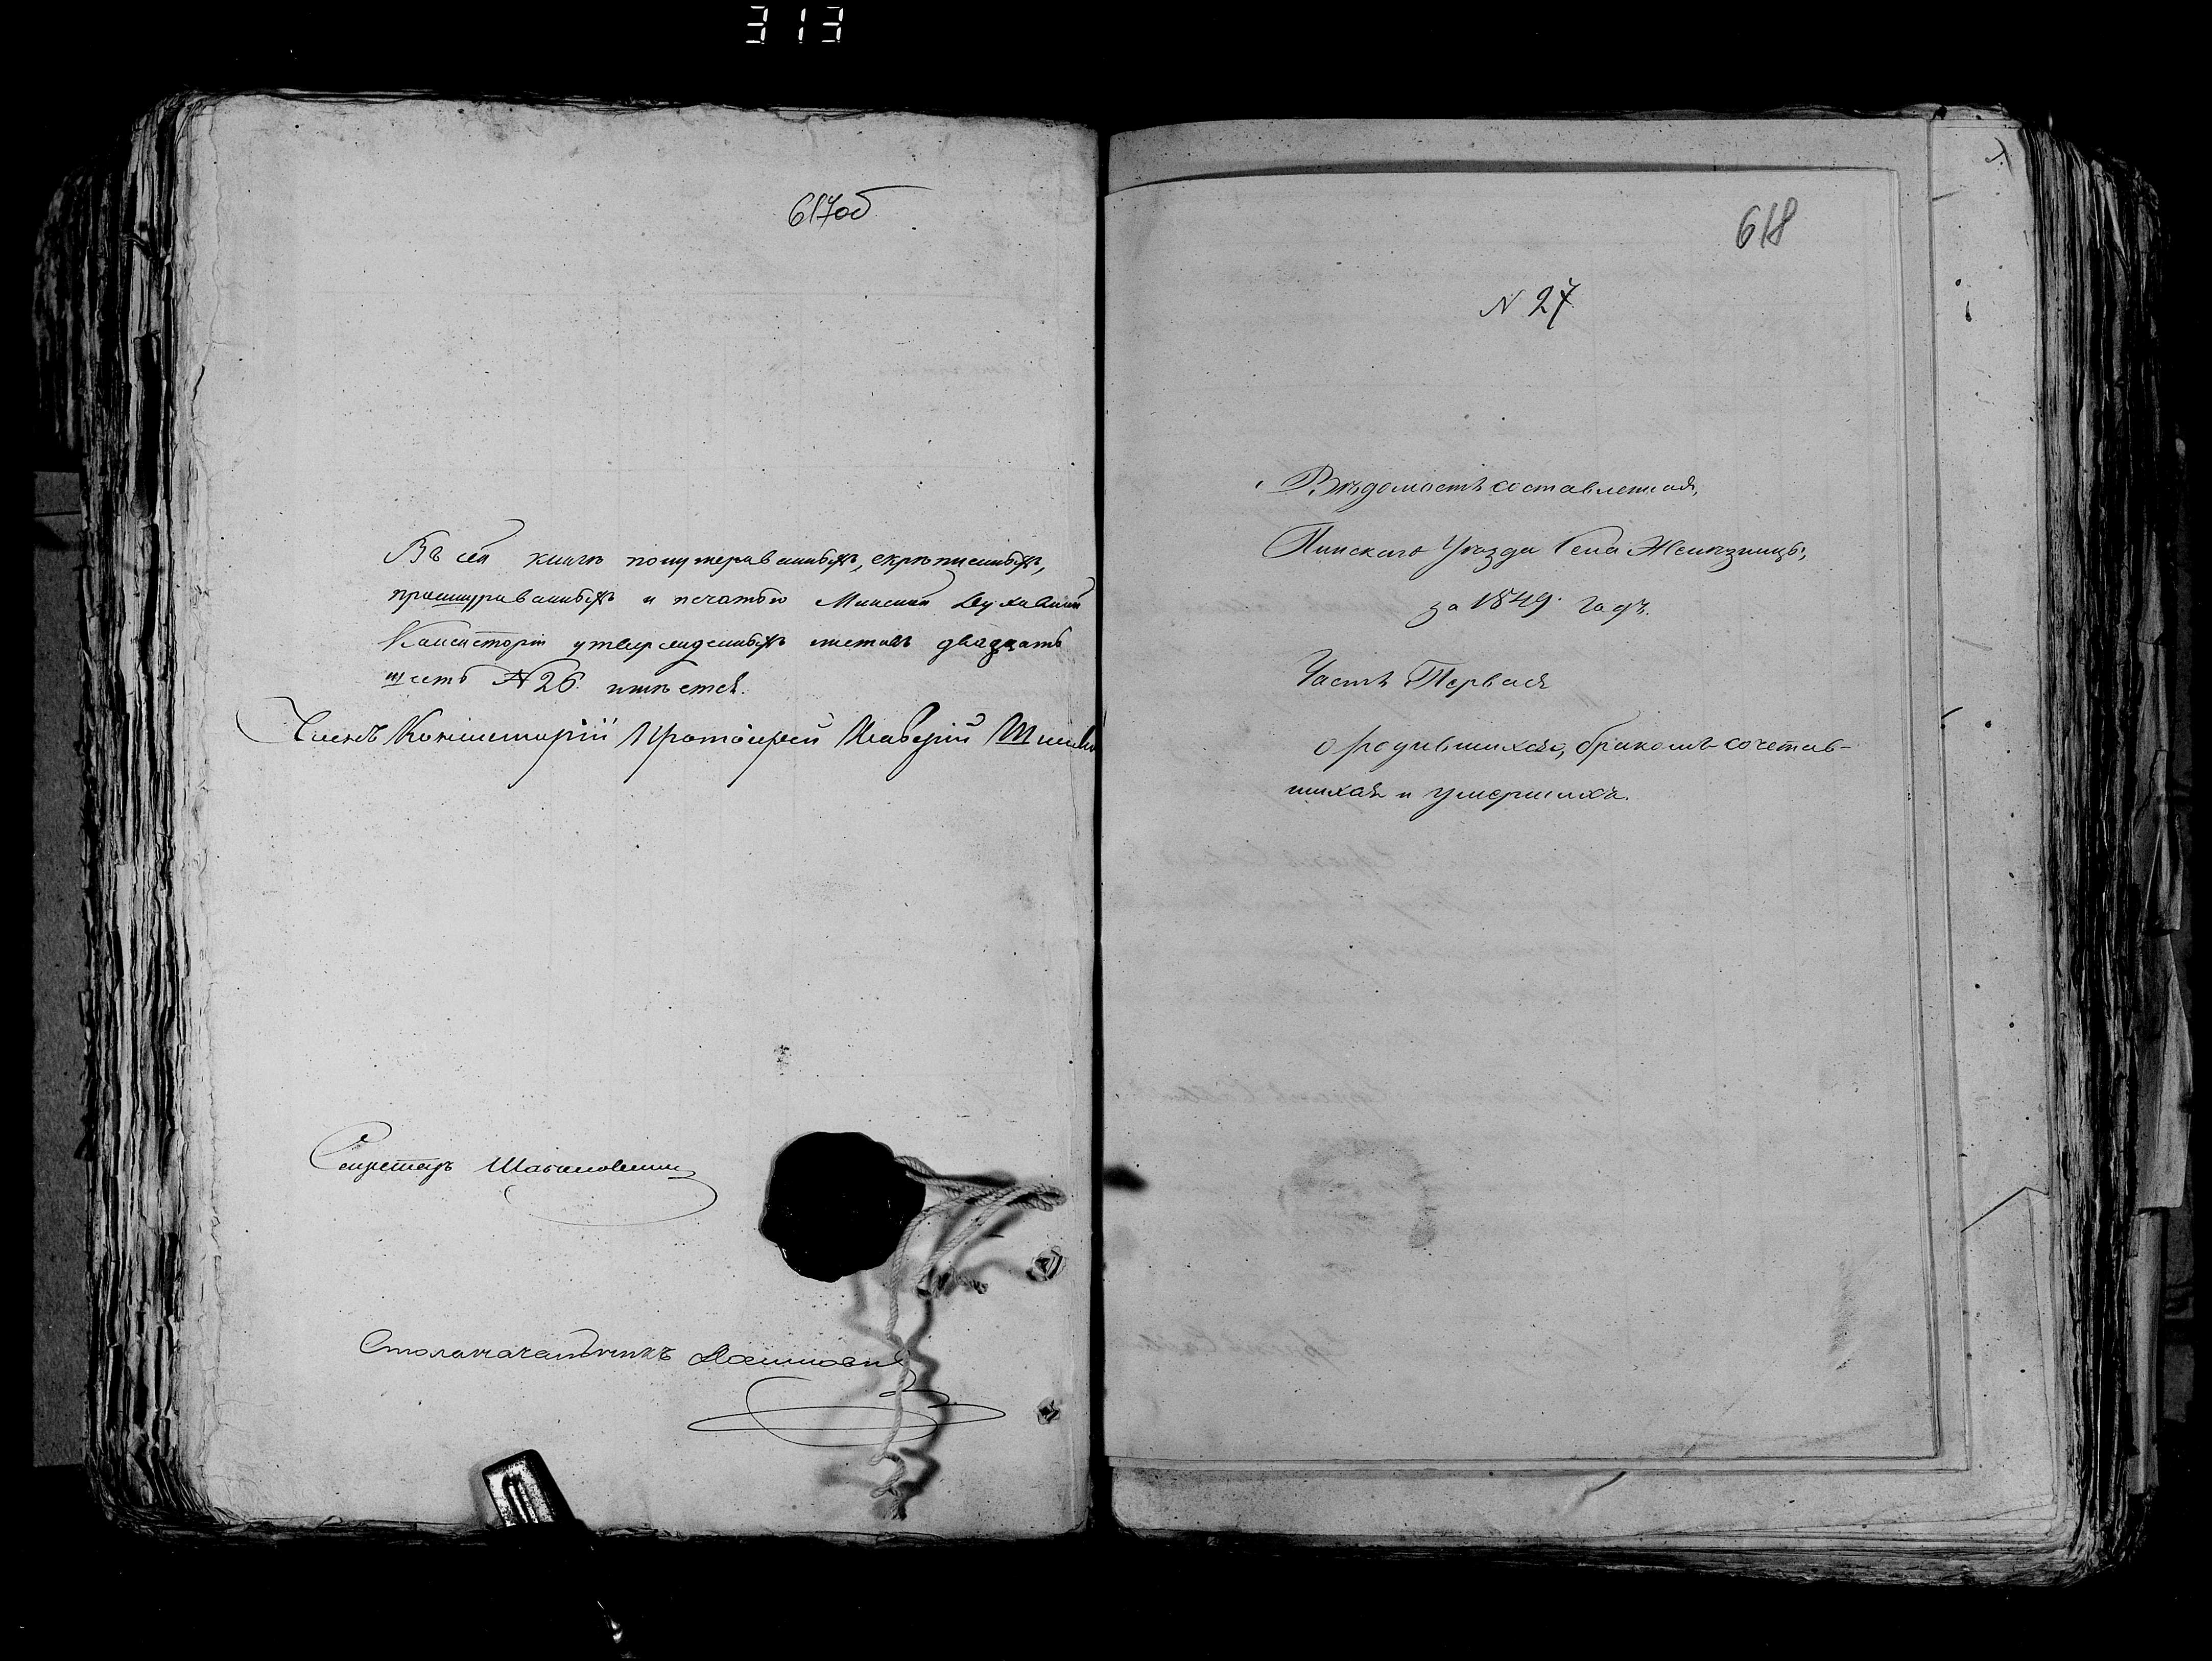 313
617об
Въ сей книгѣ понумерованныхъ, скрѣпленныхъ,
прошнурованныхъ и печатью Минской Духовной
Консисторіи утвержденныхъ листовъ двадцать
шесть N 26. имѣется.
Членъ Консисторіи Протоіерей
Секретарь
Столоначальникъ
618
N 27
Вѣдомость составленная,
Пинскаго Уѣзда Села
за 1849. годъ.
Часть Первая
о родившихся, бракомъ сочетав-
шихся и умершихъ.